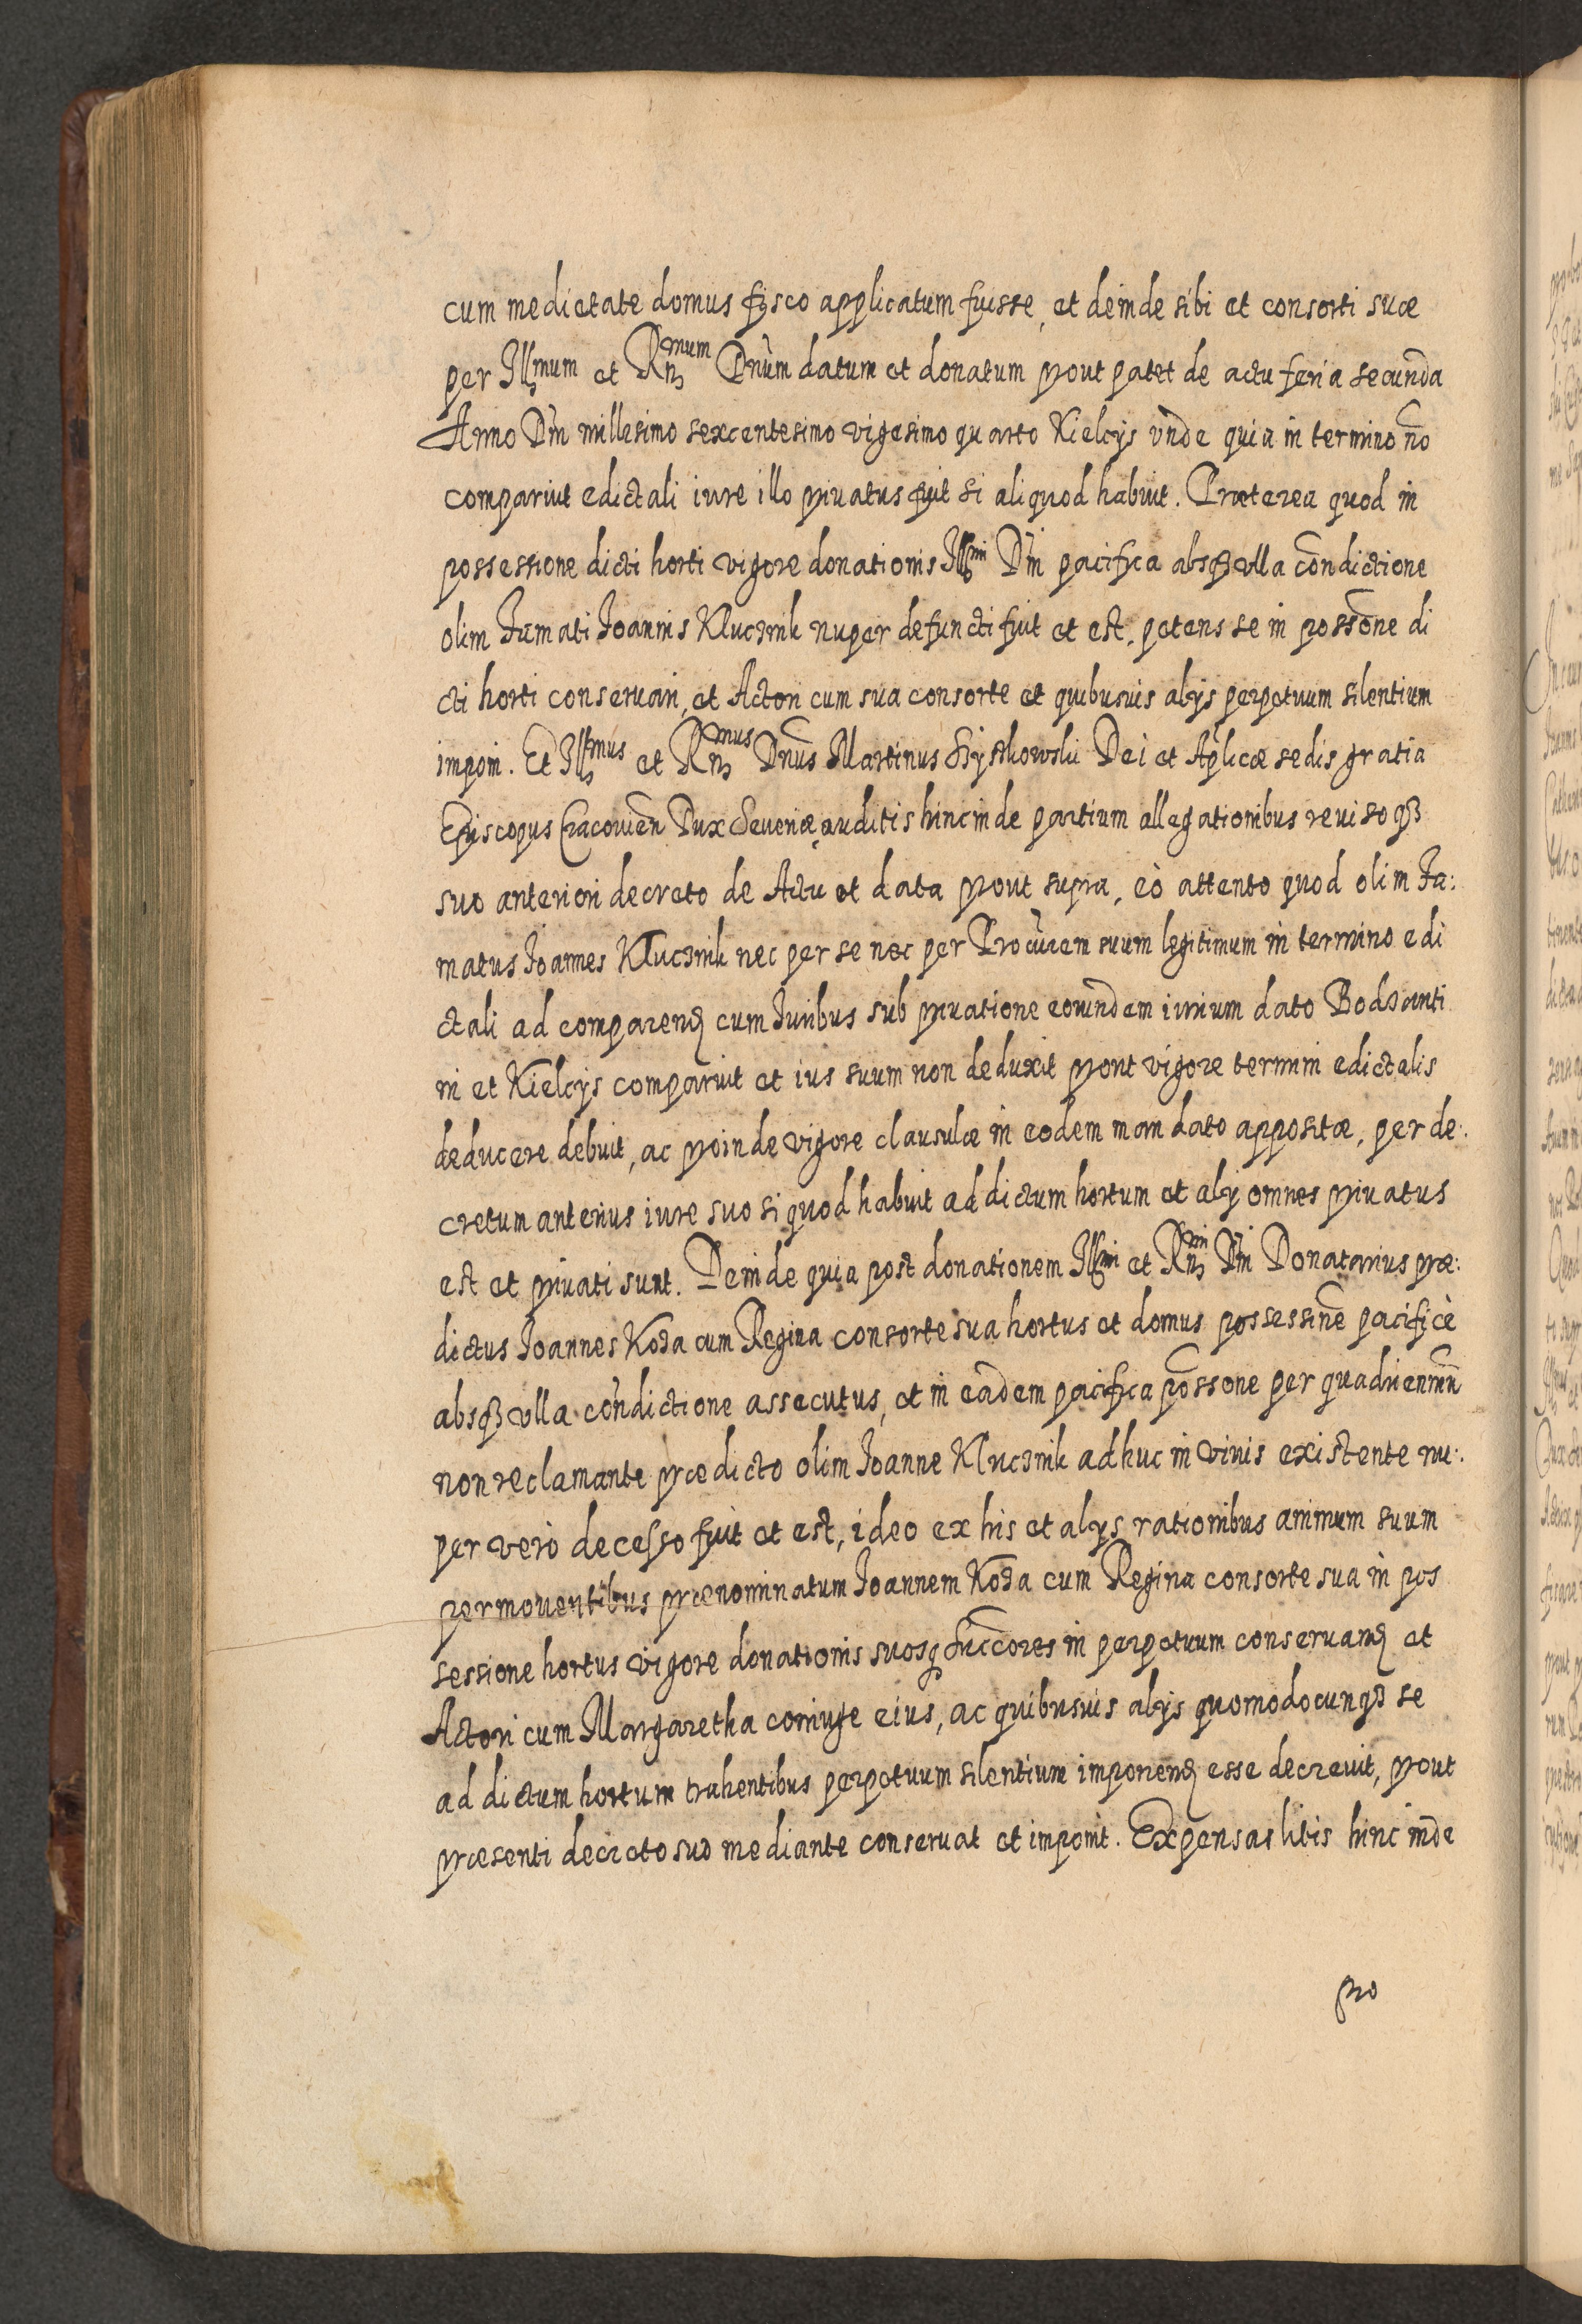 cum medietate domus fisco applicatum fuisse, et deinde sibi et consorti suæ
per Illmum et Rnmum Dnum datum et donatum prout patet de actu feria secunda
Anno Dni millesimo sexcentesimo vigesimo quarto Kielcijs vnde quia in termino no
comparuit edictali iure illo priuatus fuit si aliquod habuit. Præterea quod in
possessione dicti horti vigore donationis Illmi Dni pacifica absq vlla condictione
olim Famati Joannis Klucznik nuper defuncti fuit et est, petens se in possone di
cti horti conseruari, et Actori cum sua consorte et quibusuis alijs perpetuum silentium
imponi. Et Illmus et Rnmus Dnus Martinus Szyszkowski Dei et Aplicæ sedis gratia
Episcopus Cracouien Dux Seueriæ, auditis hincinde partium allegationibus reuisoq
suo anteriori decreto de Actu et data prout supra, eò attento quod olim Fa:
matus Joannes Klucznik nec per se nec per Procurem suum legitimum in termino edi
ctali ad comparend cum Juribus sub priuatione eorundem iurium dato Bodzanti
ni et Kielcijs comparuit et ius suum non deduxit prout vigore termini edictalis
deducere debuit, ac proinde vigore clausulæ in eodem mandato appositæ, per de:
cretum anterius iure suo si quod habuit ad dictum hortum et alij omnes priuatus
est et priuati sunt. Deinde quia post donationem Illmi et Rnmi Dni Donatarius præ:
dictus Joannes Koza cum Regina consorte sua hortus et domus possessine pacificè
absq vlla condictione assecutus, et in eadem pacifica possone per quadriennin
non reclamante prædicto olim Joanne Klucznik adhuc in viuis existente nu:
per verò decesso fuit et est, ideo ex his et alijs rationibus animum suum
permouentibus prænominatum Joannem Koza cum Regina consorte sua in pos
sessione hortus vigore donationis suosq succores in perpetuum conseruand et
Actori cum Margaretha coniuge eius, ac quibusuis alijs quomodocunq se
ad dictum hortum trahentibus perpetuum silentium imponend esse decreuit, prout
præsenti decreto suo mediante conseruat et imponit. Expensas litis hinc inde
pro